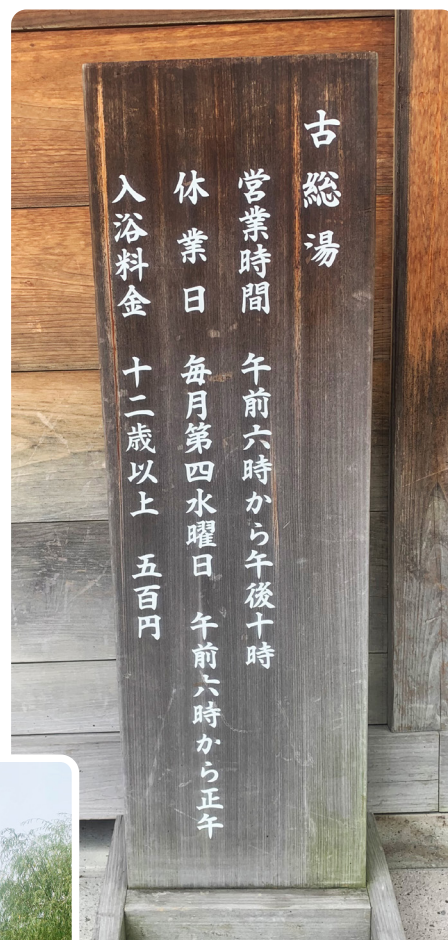 古総湯
営業時間　午前六時から午後十時
休業日　毎月第四水曜日　午前六時から正午
入浴料金　十二歳以上　五百円